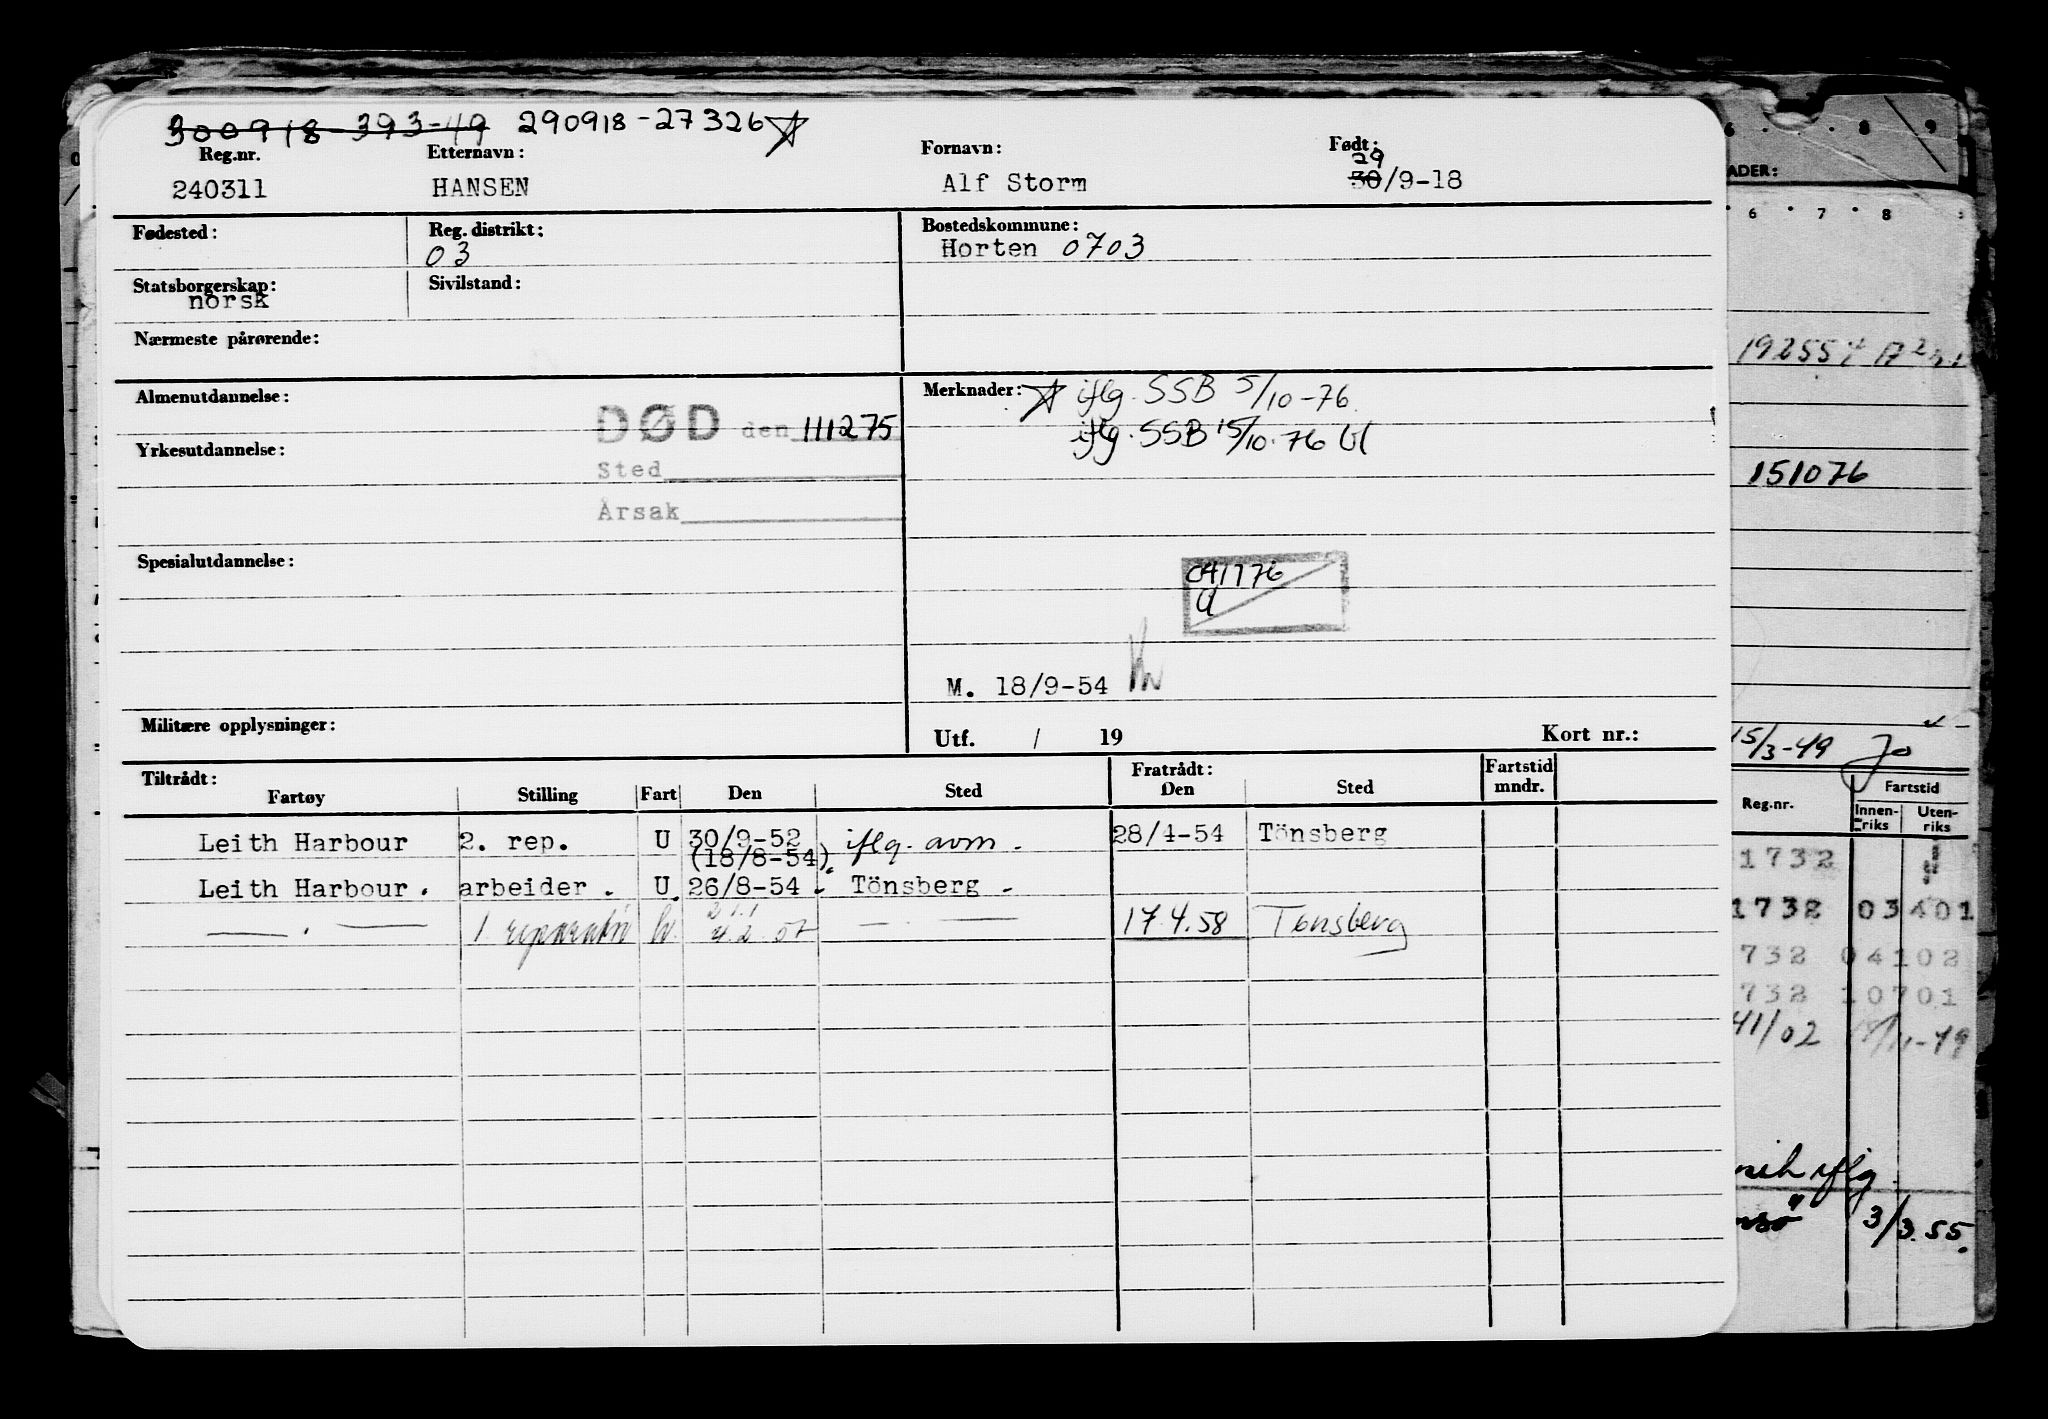 300918-393-49 290918-27326
Reg.nr. Etternavn: Fornavn: Født:
29
240311 HANSEN Alf Storm 30/9-18
Fødested: Reg. distrikt: Bostedskommune:
03 Horten 0703
Statsborgerskap: Sivilstand:
norsk
Nærmeste pårørende:
Almenutdannelse: Merknader: iflg. SSB 5/10-76
DØD den 111275
iflg. SSB 15/10.76
Yrkesutdannelse:
Sted
Årsak
Spesialutdannelse:
041176
M. 18/9-54
Militære opplysninger:
Utf. / 19 Kort nr.:
Tiltrådt: Fratrådt: Fartstid
Fartøy Stilling Fart Den Sted Den Sted mndr.
Leith Harbour 2. rep. U 30/9-52 iflg. avm. 28/4-54 Tönsberg
(18/8-54)
Leith Harbour. arbeider. U. 26/8-54 Tönsberg
— . — 1 reparatör — . — 17.4.58 Tønsberg
6 8 9
ADER:
6 7 8
151076
15/3-49
Reg.nr. Fartstid
Innenriks Utenriks
1732
1732 03401
732 04102
732 10701
41/02
iflg.
3/3.55.